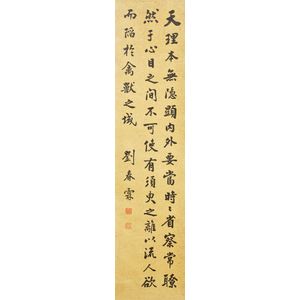 天理本無隱顯内外要當時〻省察常瞭
然于心目之间不可使有須臾之離以流人欲
而陷於禽獸之域
劉春霖